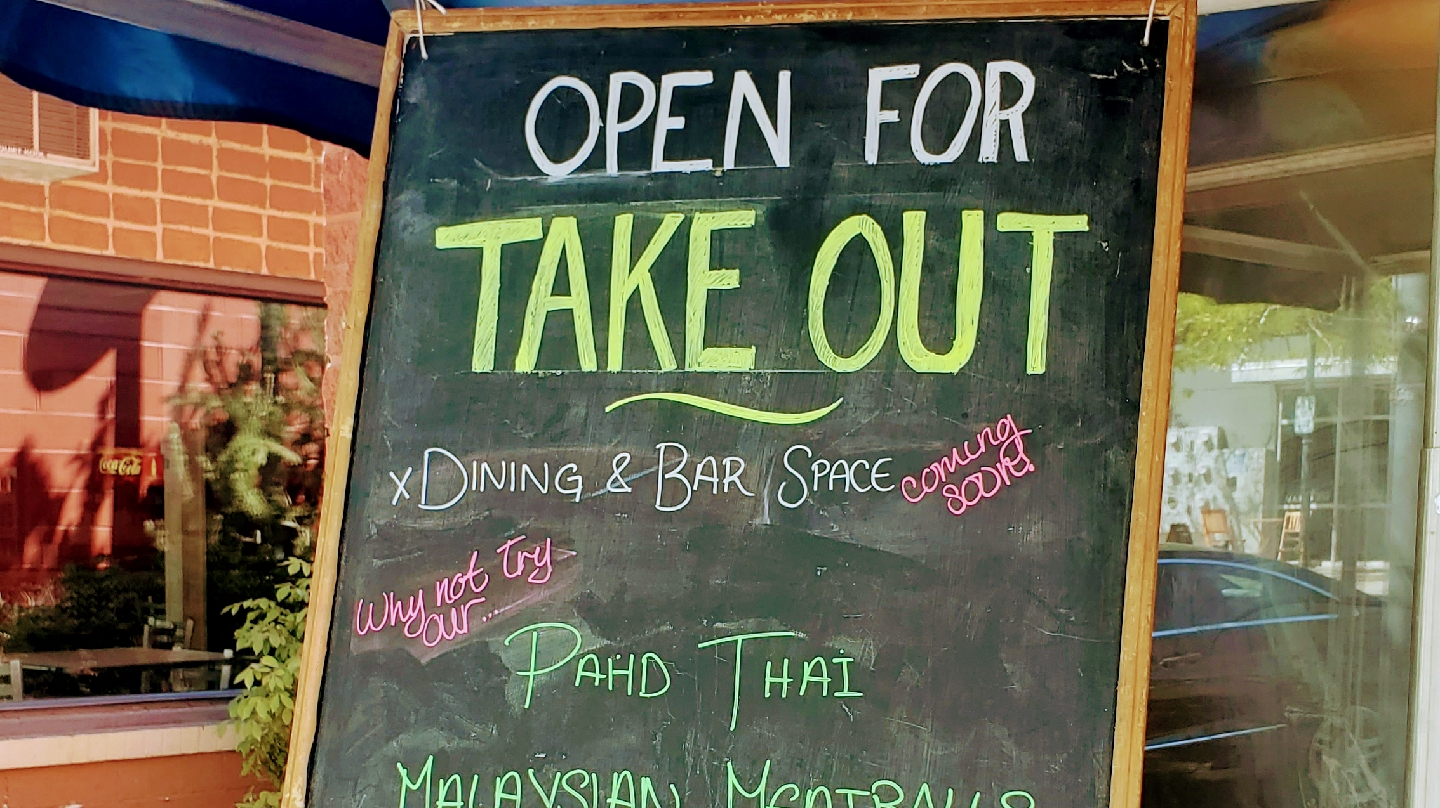 OPEN FOR
TAKE OUT
x DINING & BAR SPACE coming soon!
Why not try our...
PAHD THAI
MALAYSIAN MEATBALLS
Coca-Cola